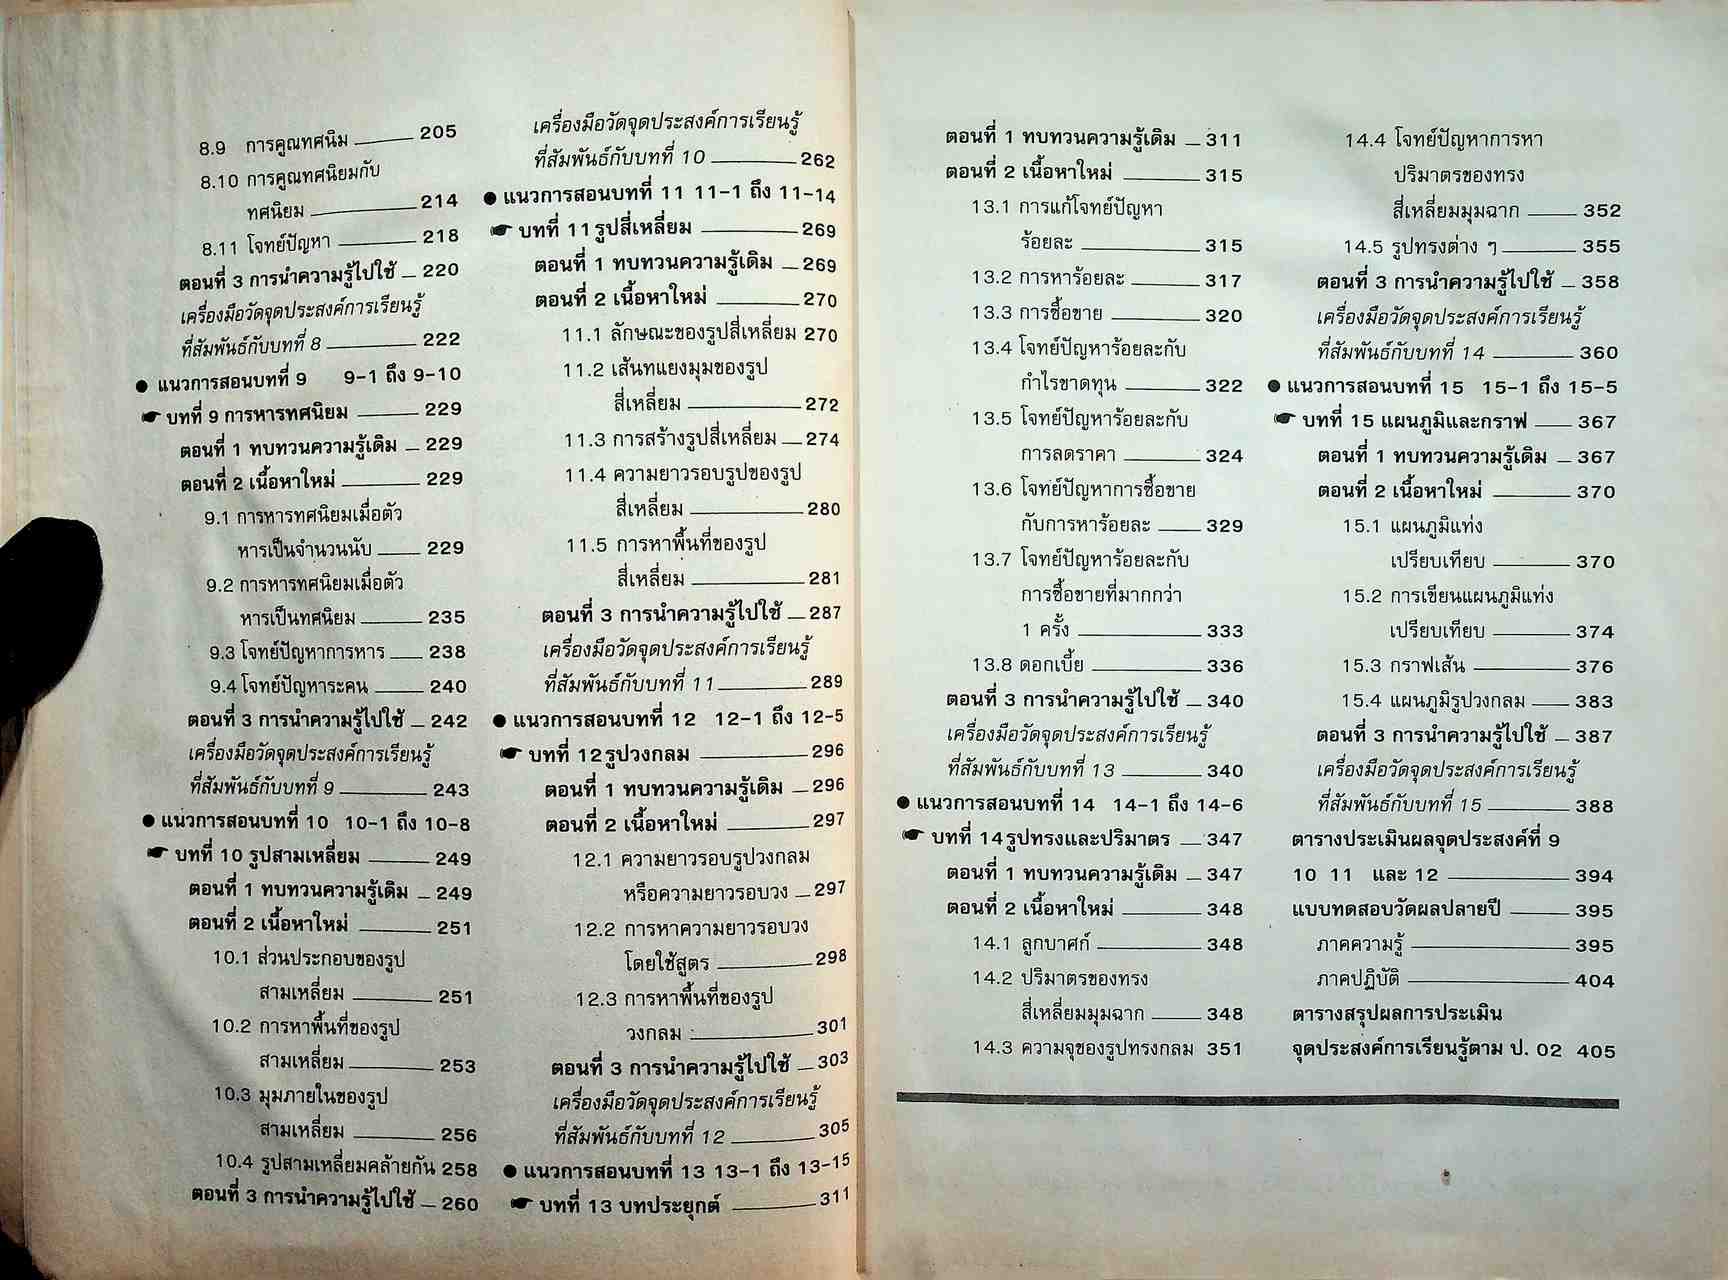 8.9 การคูณทศนิม 205
8.10 การคูณทศนิยมกับ
ทศนิยม 214
8.11 โจทย์ปัญหา 218
ตอนที่ 3 การนำความรู้ไปใช้ 220
เครื่องมือวัดจุดประสงค์การเรียนรู้
ที่สัมพันธ์กับบทที่ 8 222
● แนวการสอนบทที่ 9 9-1 ถึง 9-10
☛ บทที่ 9 การหารทศนิยม 229
ตอนที่ 1 ทบทวนความรู้เดิม 229
ตอนที่ 2 เนื้อหาใหม่ 229
9.1 การหารทศนิยมเมื่อตัว
หารเป็นจำนวนนับ 229
9.2 การหารทศนิยมเมื่อตัว
หารเป็นทศนิยม 235
9.3 โจทย์ปัญหาการหาร 238
9.4 โจทย์ปัญหาระคน 240
ตอนที่ 3 การนำความรู้ไปใช้ 242
เครื่องมือวัดจุดประสงค์การเรียนรู้
ที่สัมพันธ์กับบทที่ 9 243
● แนวการสอนบทที่ 10 10-1 ถึง 10-8
☛ บทที่ 10 รูปสามเหลี่ยม 249
ตอนที่ 1 ทบทวนความรู้เดิม 249
ตอนที่ 2 เนื้อหาใหม่ 251
10.1 ส่วนประกอบของรูป
สามเหลี่ยม 251
10.2 การหาพื้นที่ของรูป
สามเหลี่ยม 253
10.3 มุมภายในของรูป
สามเหลี่ยม 256
10.4 รูปสามเหลี่ยมคล้ายกัน 258
ตอนที่ 3 การนำความรู้ไปใช้ 260
เครื่องมือวัดจุดประสงค์การเรียนรู้
ที่สัมพันธ์กับบทที่ 10 262
● แนวการสอนบทที่ 11 11-1 ถึง 11-14
☛ บทที่ 11 รูปสี่เหลี่ยม 269
ตอนที่ 1 ทบทวนความรู้เดิม 269
ตอนที่ 2 เนื้อหาใหม่ 270
11.1 ลักษณะของรูปสี่เหลี่ยม 270
11.2 เส้นทแยงมุมของรูป
สี่เหลี่ยม 272
11.3 การสร้างรูปสี่เหลี่ยม 274
11.4 ความยาวรอบรูปของรูป
สี่เหลี่ยม 280
11.5 การหาพื้นที่ของรูป
สี่เหลี่ยม 281
ตอนที่ 3 การนำความรู้ไปใช้ 287
เครื่องมือวัดจุดประสงค์การเรียนรู้
ที่สัมพันธ์กับบทที่ 11 289
● แนวการสอนบทที่ 12 12-1 ถึง 12-5
☛ บทที่ 12 รูปวงกลม 296
ตอนที่ 1 ทบทวนความรู้เดิม 296
ตอนที่ 2 เนื้อหาใหม่ 297
12.1 ความยาวรอบรูปวงกลม
หรือความยาวรอบวง 297
12.2 การหาความยาวรอบวง
โดยใช้สูตร 298
12.3 การหาพื้นที่ของรูป
วงกลม 301
ตอนที่ 3 การนำความรู้ไปใช้ 303
เครื่องมือวัดจุดประสงค์การเรียนรู้
ที่สัมพันธ์กับบทที่ 12 305
● แนวการสอนบทที่ 13 13-1 ถึง 13-15
☛ บทที่ 13 บทประยุกต์ 311
ตอนที่ 1 ทบทวนความรู้เดิม 311
ตอนที่ 2 เนื้อหาใหม่ 315
13.1 การแก้โจทย์ปัญหา
ร้อยละ 315
13.2 การหาร้อยละ 317
13.3 การซื้อขาย 320
13.4 โจทย์ปัญหาร้อยละกับ
กำไรขาดทุน 322
13.5 โจทย์ปัญหาร้อยละกับ
การลดราคา 324
13.6 โจทย์ปัญหาการซื้อขาย
กับการหาร้อยละ 329
13.7 โจทย์ปัญหาร้อยละกับ
การซื้อขายที่มากกว่า
1 ครั้ง 333
13.8 ดอกเบี้ย 336
ตอนที่ 3 การนำความรู้ไปใช้ 340
เครื่องมือวัดจุดประสงค์การเรียนรู้
ที่สัมพันธ์กับบทที่ 13 340
● แนวการสอนบทที่ 14 14-1 ถึง 14-6
☛ บทที่ 14 รูปทรงและปริมาตร 347
ตอนที่ 1 ทบทวนความรู้เดิม 347
ตอนที่ 2 เนื้อหาใหม่ 348
14.1 ลูกบาศก์ 348
14.2 ปริมาตรของทรง
สี่เหลี่ยมมุมฉาก 348
14.3 ความจุของรูปทรงกลม 351
14.4 โจทย์ปัญหาการหา
ปริมาตรของทรง
สี่เหลี่ยมมุมฉาก 352
14.5 รูปทรงต่าง ๆ 355
ตอนที่ 3 การนำความรู้ไปใช้ 358
เครื่องมือวัดจุดประสงค์การเรียนรู้
ที่สัมพันธ์กับบทที่ 14 360
● แนวการสอนบทที่ 15 15-1 ถึง 15-5
☛ บทที่ 15 แผนภูมิและกราฟ 367
ตอนที่ 1 ทบทวนความรู้เดิม 367
ตอนที่ 2 เนื้อหาใหม่ 370
15.1 แผนภูมิแท่ง
เปรียบเทียบ 370
15.2 การเขียนแผนภูมิแท่ง
เปรียบเทียบ 374
15.3 กราฟเส้น 376
15.4 แผนภูมิรูปวงกลม 383
ตอนที่ 3 การนำความรู้ไปใช้ 387
เครื่องมือวัดจุดประสงค์การเรียนรู้
ที่สัมพันธ์กับบทที่ 15 388
ตารางประเมินผลจุดประสงค์ที่ 9
10 11 และ 12 394
แบบทดสอบวัดผลปลายปี 395
ภาคความรู้ 395
ภาคปฏิบัติ 404
ตารางสรุปผลการประเมิน
จุดประสงค์การเรียนรู้ตาม ป. 02 405